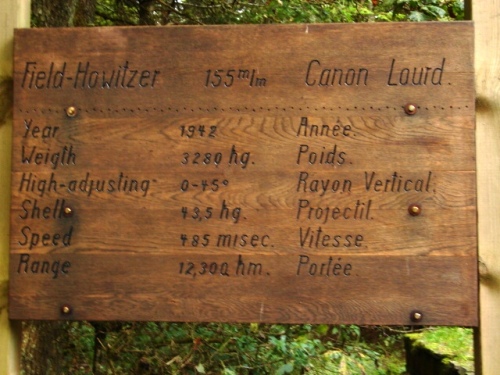 Field-Howitzer 155m/m Canon Lourd.
Year 1942 Année
Weigth 3280 hg. Poids.
High-adjusting 0-45° Rayon Vertical.
Shell 43,5 hg. Projectil.
Speed 485 misec. Vitesse.
Range 12,300 hm. Portée